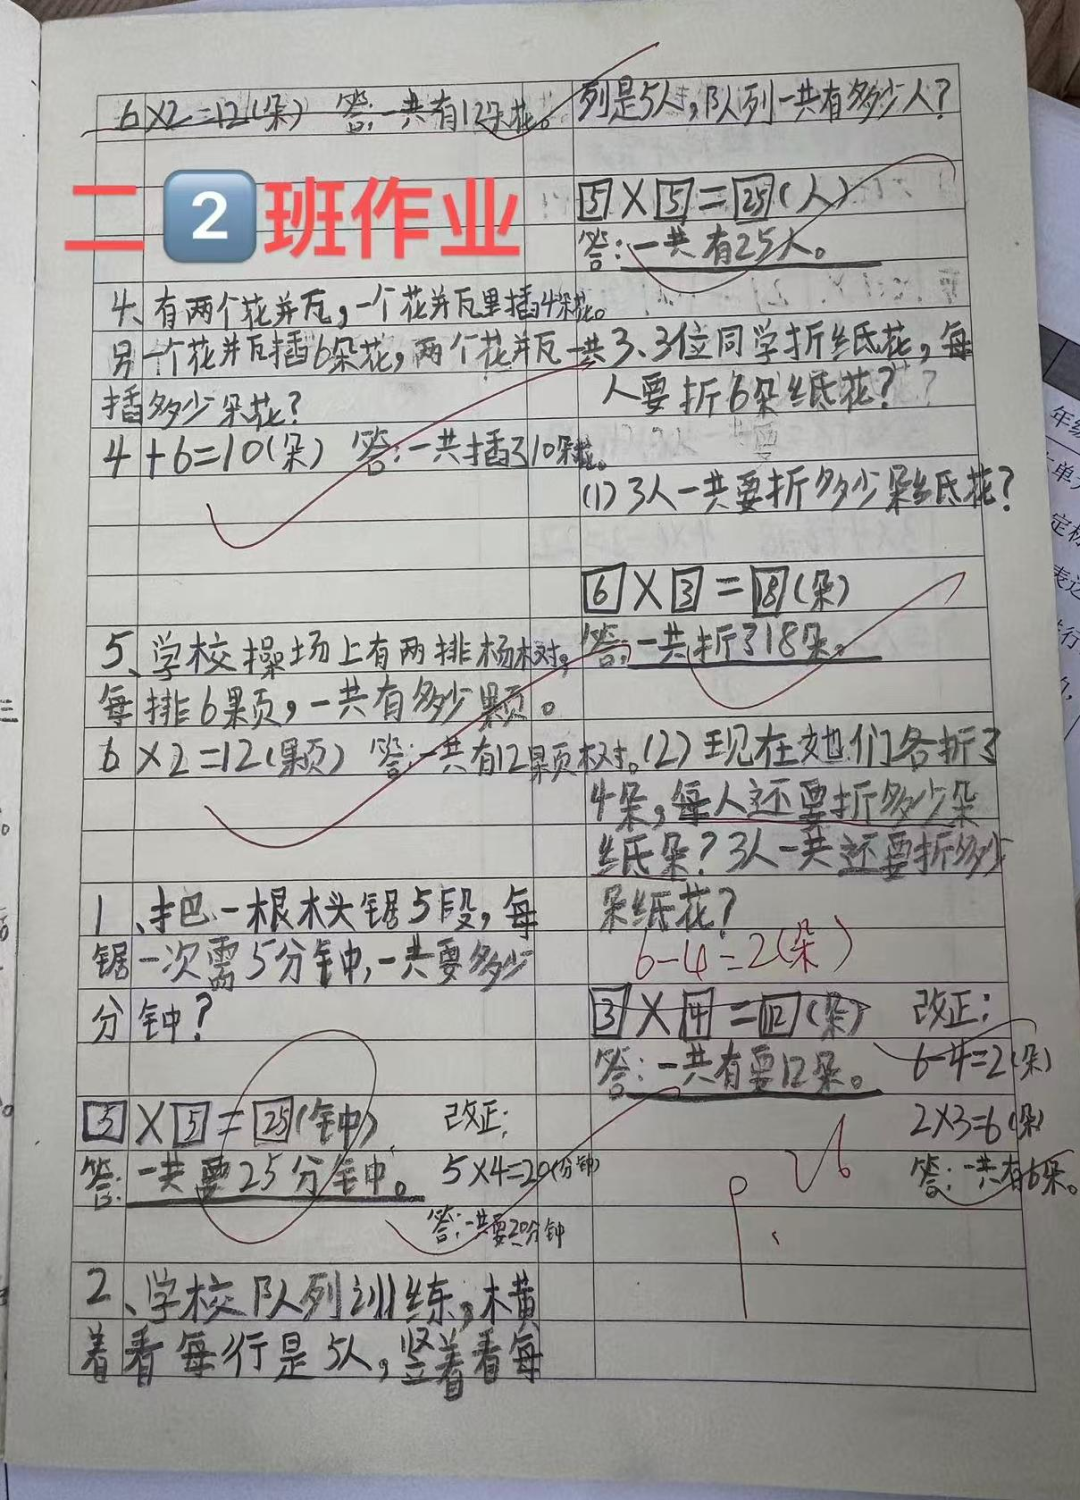 6×2=12(朵) 答:一共有12朵花。
二2班作业
4、有两个花并瓦,一个花并瓦里插4朵花。
另一个花并瓦插6朵花,两个花并瓦一共
插多少朵花?
4+6=10(朵) 答:一共插了10朵花。
5、学校操场上有两排杨树,
每排6果页,一共有多少果页。
6×2=12(果页) 答:一共有12果页树。
1、把一根木头锯5段,每
锯一次需5分钟,一共要多少
分钟?
5×5=25(钟)
答:一共要25分钟。
改正:
5×4=20(分钟)
答:一共要20分钟
2、学校队列训练,横
着看每行是5人,竖着看每
列是5人,队列一共有多少人?
5×5=25(人)
答:一共有25人。
3、3位同学折纸花,每
人要折6朵纸花?
(1)3人一共要折多少朵纸花?
6×3=18(朵)
答:一共折了18朵。
(2)现在她们各折了
4朵,每人还要折多少朵
纸朵?3人一共还要折多少
朵纸花?
6-4=2(朵)
3×4=12(朵)
答:一共有要12朵。
改正:
6-4=2(朵)
2×3=6(朵)
答:一共有6朵。